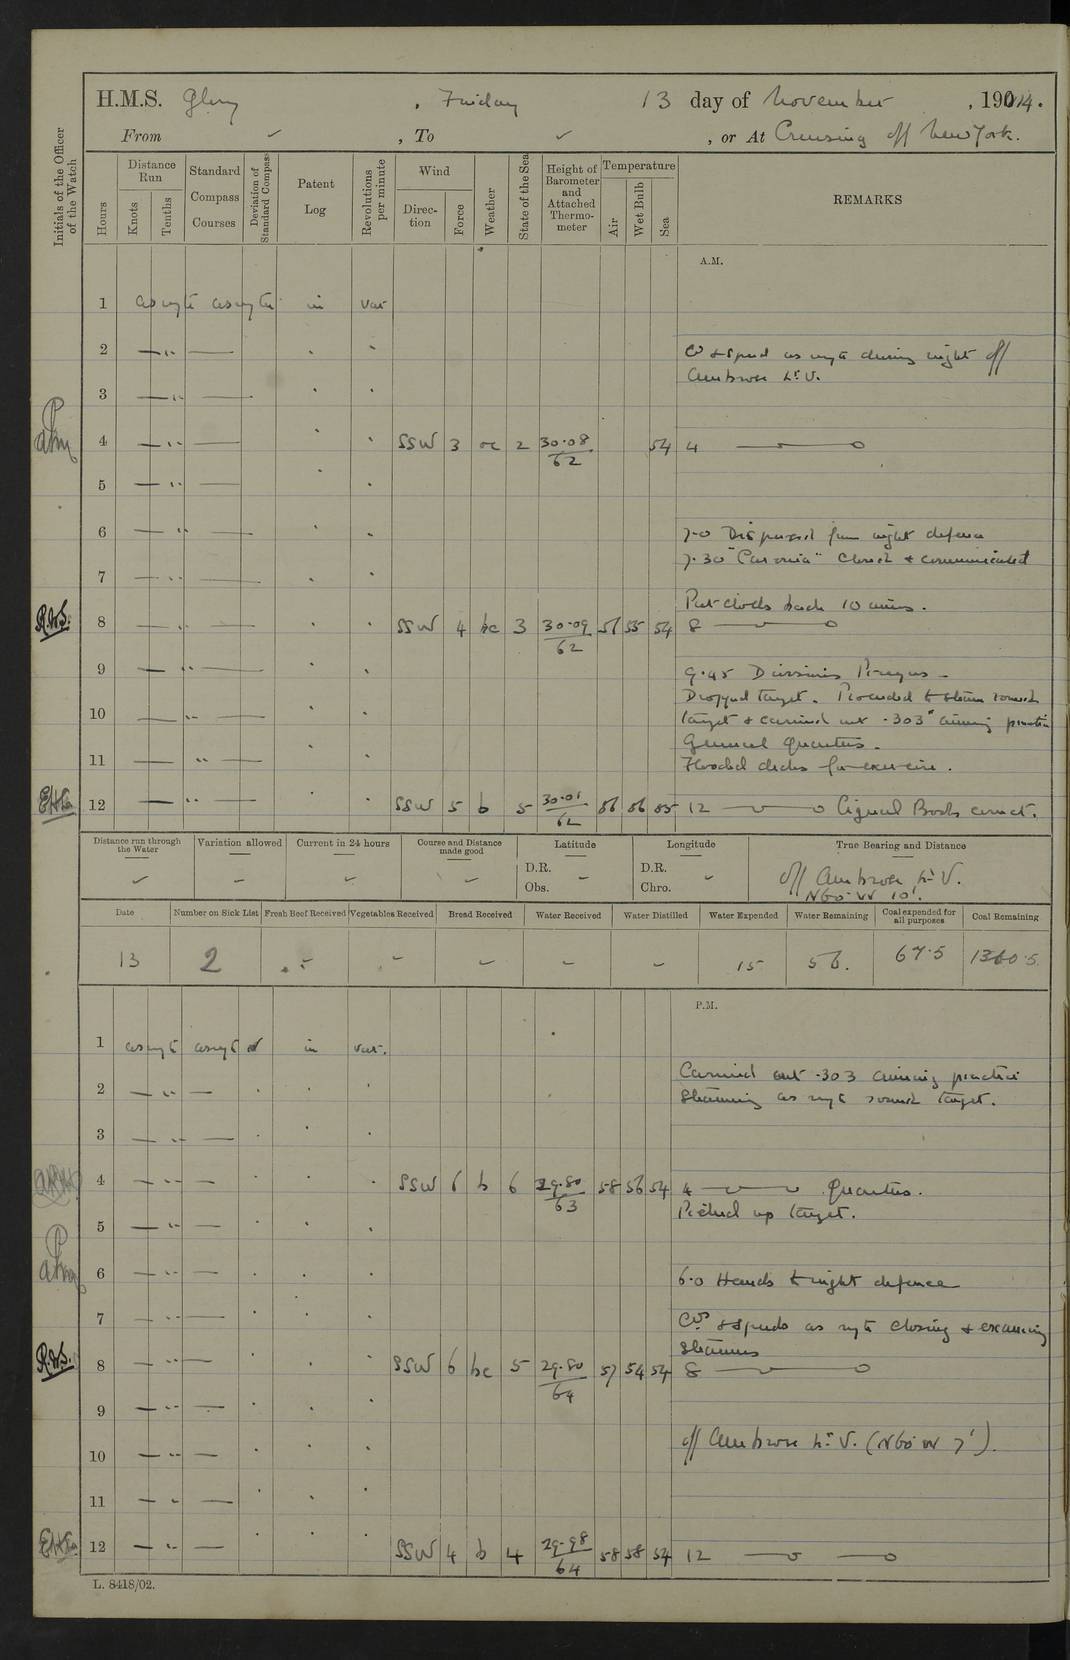 H.M.S. Glory, Friday 13 day of November, 1914.
From ✓, To ✓, or At Cruising off New York.
Initials of the Officer of the Watch
Hours
Distance Run
Knots
Tenths
Standard Compass Courses
Deviation of Standard Compass
Patent Log
Revolutions per minute
Wind
Direction
Force
Weather
State of the Sea
Height of Barometer and Attached Thermometer
Temperature
Air
Wet Bulb
Sea
REMARKS
A.M.
1 as reqte as reqte in var
2 Co & speed as reqte during night off
Ambrose Lt. V.
3
4 SSW 3 oc 2 30.08/62 54 4
5
6 7.0 Dispersed from night defence
7.30 "Caronia" closed & communicated
7
Put clocks back 10 mins.
R.W.S. 8 SSW 4 bc 3 30.09/62 56 55 54 8
9 9.45 Divisions Prayers
Dropped target. Proceeded to steam round
10 target & carried out .303" aiming practice
General Quarters.
11 Flooded decks for exercise.
12 SSW 5 b 5 30.01/62 56 56 55 12 Signal Books correct.
Distance run through the Water
Variation allowed
Current in 24 hours
Course and Distance made good
Latitude
Longitude
True Bearing and Distance
D.R.
Obs.
D.R.
Chro.
off Ambrose Lt. V.
N60°W 10'.
Date
Number on Sick List
Fresh Beef Received
Vegetables Received
Bread Received
Water Received
Water Distilled
Water Expended
Water Remaining
Coal expended for all purposes
Coal Remaining
13 2 - - - - - 15 56. 67.5 1360.5
P.M.
1 as reqte as reqte in var.
Carried out .303 aiming practice
2 Steaming as reqte round target.
3
4 SSW 6 b 6 29.80/63 58 56 54 4 Quarters.
Picked up target.
5
6 6.0 Hands to night defence
7 Cos & speeds as reqte closing & examining
steamers
R.W.S. 8 SSW 6 bc 5 29.80/64 57 54 54 8
9
10 off Ambrose Lt. V. (N60°W 7').
11
12 SSW 4 b 4 29.98/64 58 58 54 12
L. 8418/02.